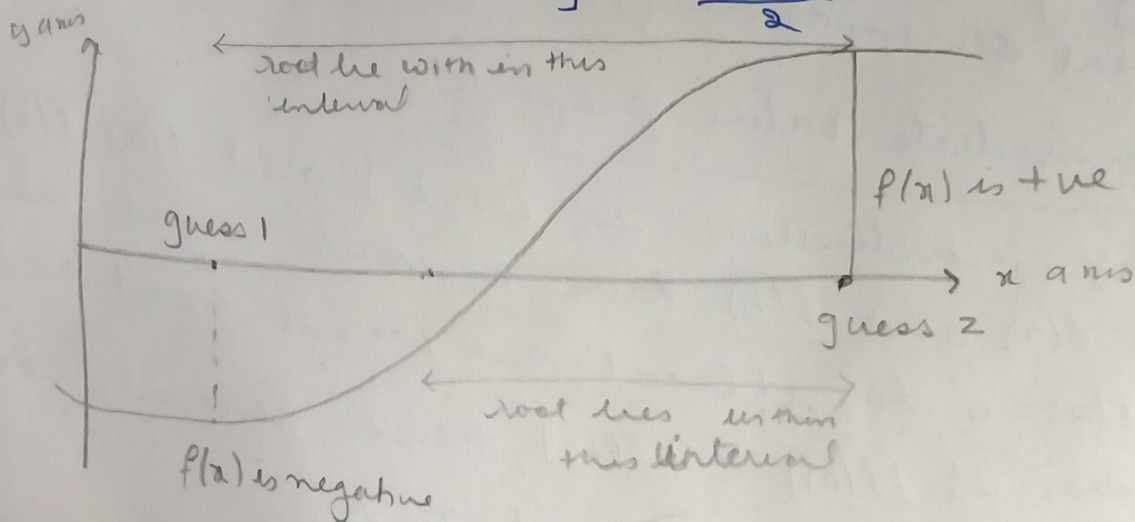 2
y axis
root lie with in this
interval
f(x) is +ve
guess 1
x axis
guess 2
root lies within
this interval
f(x) is negative